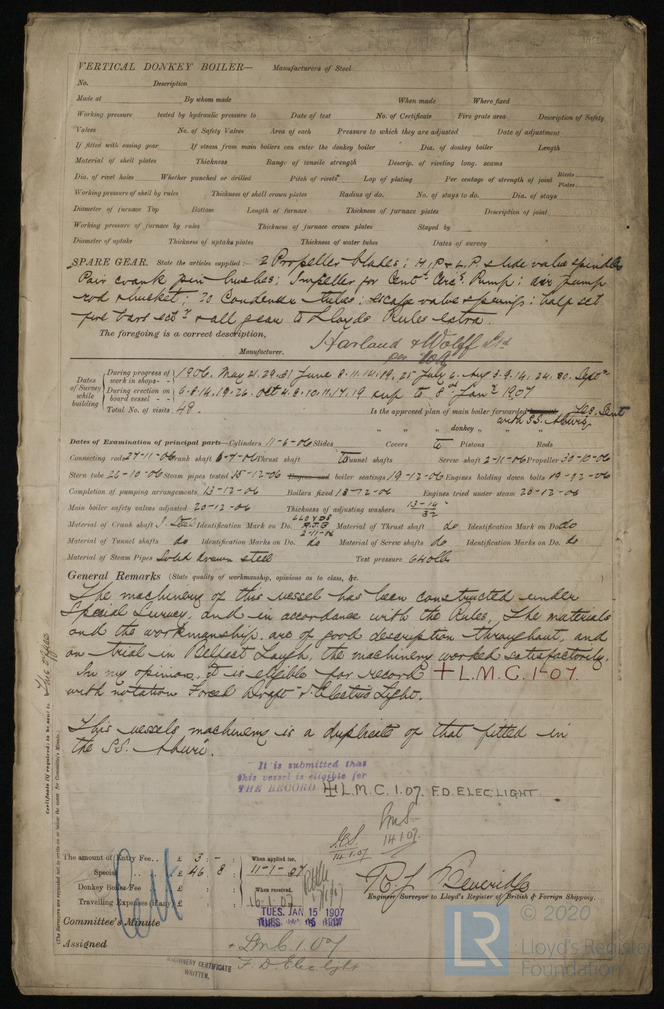 VERTICAL DONKEY BOILER— Manufacturers of Steel
No. Description
Made at By whom made When made Where fixed
Working pressure tested by hydraulic pressure to Date of test No. of Certificate Fire grate area Description of Safety
Valves No. of Safety Valves Area of each Pressure to which they are adjusted Date of adjustment
If fitted with easing gear If steam from main boilers can enter the donkey boiler Dia. of donkey boiler Length
Material of shell plates Thickness Range of tensile strength Descrip. of riveting long. seams
Dia. of rivet holes Whether punched or drilled Pitch of rivets Lap of plating Per centage of strength of joint Rivets Plates
Working pressure of shell by rules Thickness of shell crown plates Radius of do. No. of stays to do. Dia. of stays
Diameter of furnace Top Bottom Length of furnace Thickness of furnace plates Description of joint
Working pressure of furnace by rules Thickness of furnace crown plates Stayed by
Diameter of uptake Thickness of uptake plates Thickness of water tubes Dates of survey
SPARE GEAR. State the articles supplied:— 2 Propeller blades; H.P. & L.P. slide valve spindles
Pair crank pin bushes; Impeller for Cent. Circ. Pump; air pump
rod & bucket; 20 Condenser tubes; escape valve springs; half set
fire bars set & all gear to Lloyds Rules extra.
The foregoing is a correct description,
Harland & Wolff Ld
Manufacturer. per
Dates of Survey while building
During progress of work in shops - - 1906. May 21.29.31 June 8.11.14.19, 25 July 6. Aug 3.9.14.24.30. Sept
During erection on board vessel - - 6.8.14.19.26. Oct 4.8.10.11.17.19 cup to 8th Jany 1907
Total No. of visits 49. Is the approved plan of main boiler forwarded Yes. Sent
with SS. Aburi
" " donkey " "
Dates of Examination of principal parts—Cylinders 11-6-06 Slides Covers to Pistons Rods
Connecting rods 27-11-06 Crank shaft 6-7-06 Thrust shaft to Tunnel shafts Screw shaft 2-11-06 Propeller 30-10-06
Stern tube 26-10-06 Steam pipes tested 15-12-06 Engine and boiler seatings 19-12-06 Engines holding down bolts 19-12-06
Completion of pumping arrangements 13-12-06 Boilers fixed 13-12-06 Engines tried under steam 20-12-06
Main boiler safety valves adjusted 20-12-06 Thickness of adjusting washers 13-14 32
Material of Crank shaft I. Steel Identification Mark on Do. LLOYDS R.J.B 2-11-06 Material of Thrust shaft do Identification Mark on Do. do
Material of Tunnel shafts do Identification Marks on Do. do Material of Screw shafts do Identification Marks on Do. do
Material of Steam Pipes Solid drawn steel Test pressure 640 lbs
General Remarks (State quality of workmanship, opinions as to class, &c.
The machinery of this vessel has been constructed under
Special Survey, and in accordance with the Rules. The materials
and the workmanship are of good description throughout, and
on trial in Belfast Lough, the machinery worked satisfactorily.
In my opinion, it is eligible for record + L.M.C. 1-07.
with notation Forced Draft & Electric Light.
This vessels machinery is a duplicate of that fitted in
the S.S. Aburi.
It is submitted that
this vessel is eligible for
THE RECORD + L.M.C. 1.07. F.D. ELEC. LIGHT.
14.1.07
14.1.07
The amount of Entry Fee . . £ 3 : - : When applied for,
Special . . £ 46 : 8 : 11-1-07
Donkey Boiler Fee £ : : When received,
Travelling Expenses (if any) £ : : 16-1-07
R. J. Beveridge
Engineer Surveyor to Lloyd's Register of British & Foreign Shipping.
Committee's Minute TUES. JAN 15 1907
Assigned + LMC 1.07
F. D. Elec light
MACHINERY CERTIFICATE
WRITTEN.
Certificate (if required) to be sent to This office
(The Surveyors are requested not to write on or below the space for Committee's Minute.)
© 2020
LR
Lloyd's Register
Foundation